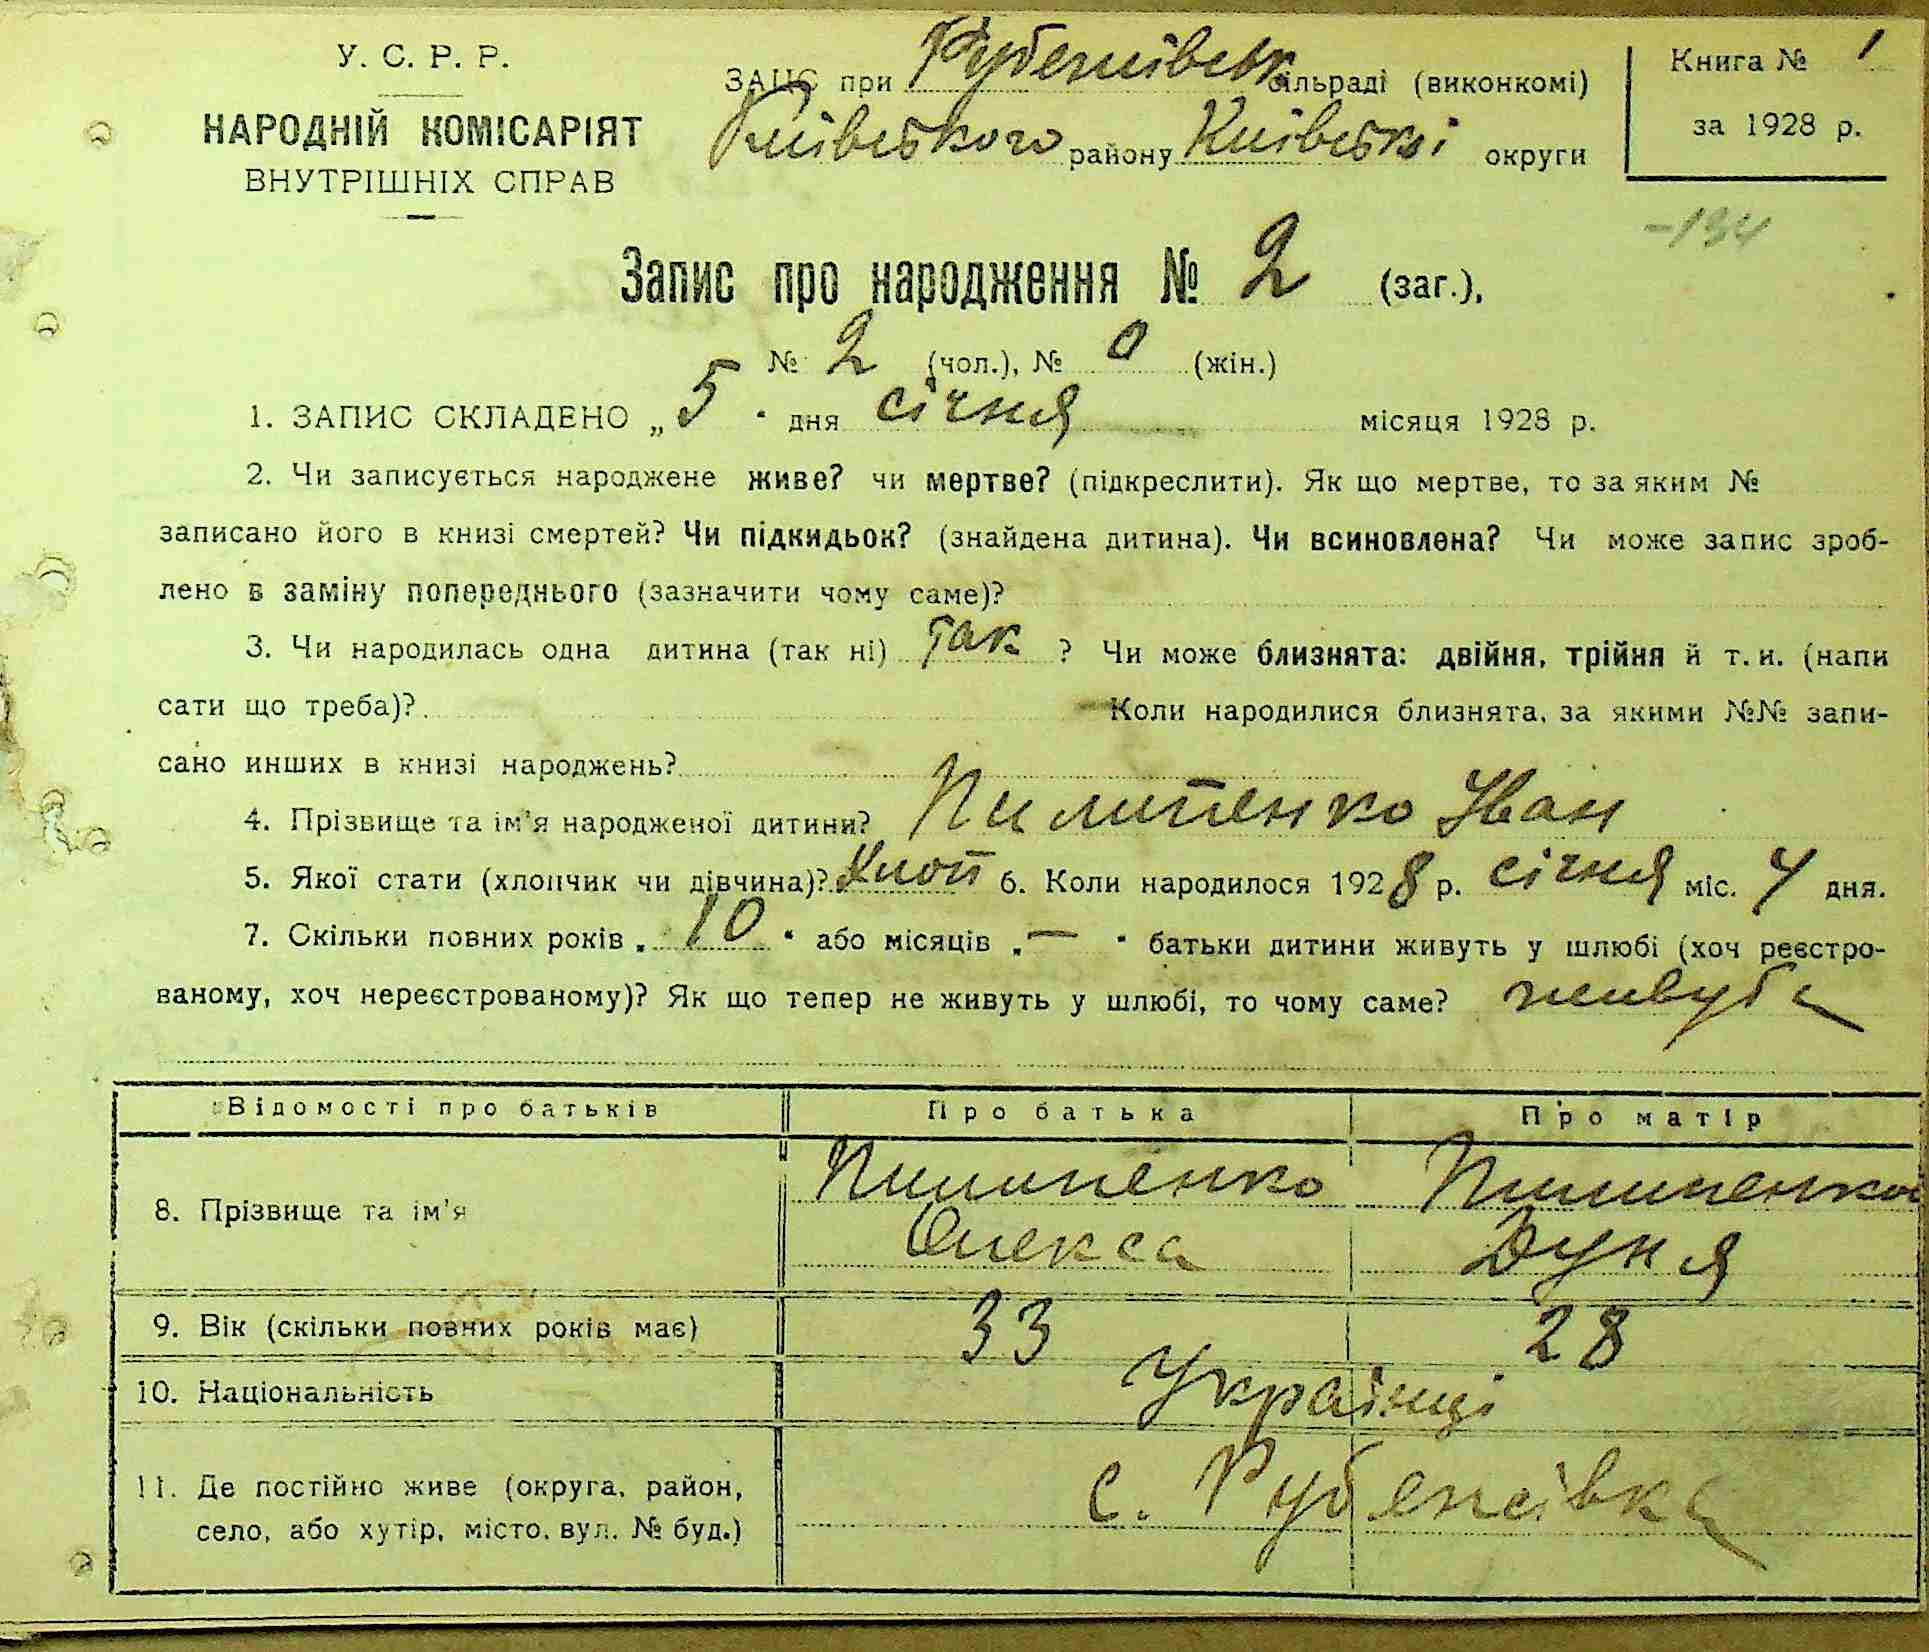 У. С. Р. Р.
НАРОДНІЙ КОМІСАРІЯТ
ВНУТРІШНІХ СПРАВ
ЗАЦС при Рубежівськ сільраді (виконкомі)
Київського району Київської округи
Книга № 1
за 1928 р.
-134
Запис про народження № 2 (заг.),
№ 2 (чол.), № 0 (жін.)
1. ЗАПИС СКЛАДЕНО „ 5 " дня січня місяця 1928 р.
2. Чи записується народжене живе? чи мертве? (підкреслити). Як що мертве, то за яким №
записано його в книзі смертей? Чи підкидьок? (знайдена дитина). Чи всиновлена? Чи може запис зроб-
лено в заміну попереднього (зазначити чому саме)?
3. Чи народилась одна дитина (так ні) так ? Чи може близнята: двійня, трійня й т. и. (напи
сати що треба)? Коли народилися близнята, за якими №№ запи-
сано инших в книзі народжень?
4. Прізвище та ім'я народженої дитини? Пилипенко Іван
5. Якої стати (хлопчик чи дівчина)? Хлоп 6. Коли народилося 1928 р. січня міс. 4 дня.
7. Скільки повних років „ 10 " або місяців „ — " батьки дитини живуть у шлюбі (хоч реєстро-
ваному, хоч нереєстрованому)? Як що тепер не живуть у шлюбі, то чому саме? живуть
Відомості про батьків Про батька Про матір
8. Прізвище та ім'я Пилипенко Олекса Пилипенкова Дуня
9. Вік (скільки повних років має) 33 28
10. Національність Українці
11. Де постійно живе (округа, район,
село, або хутір, місто, вул. № буд.) с. Рубежівка